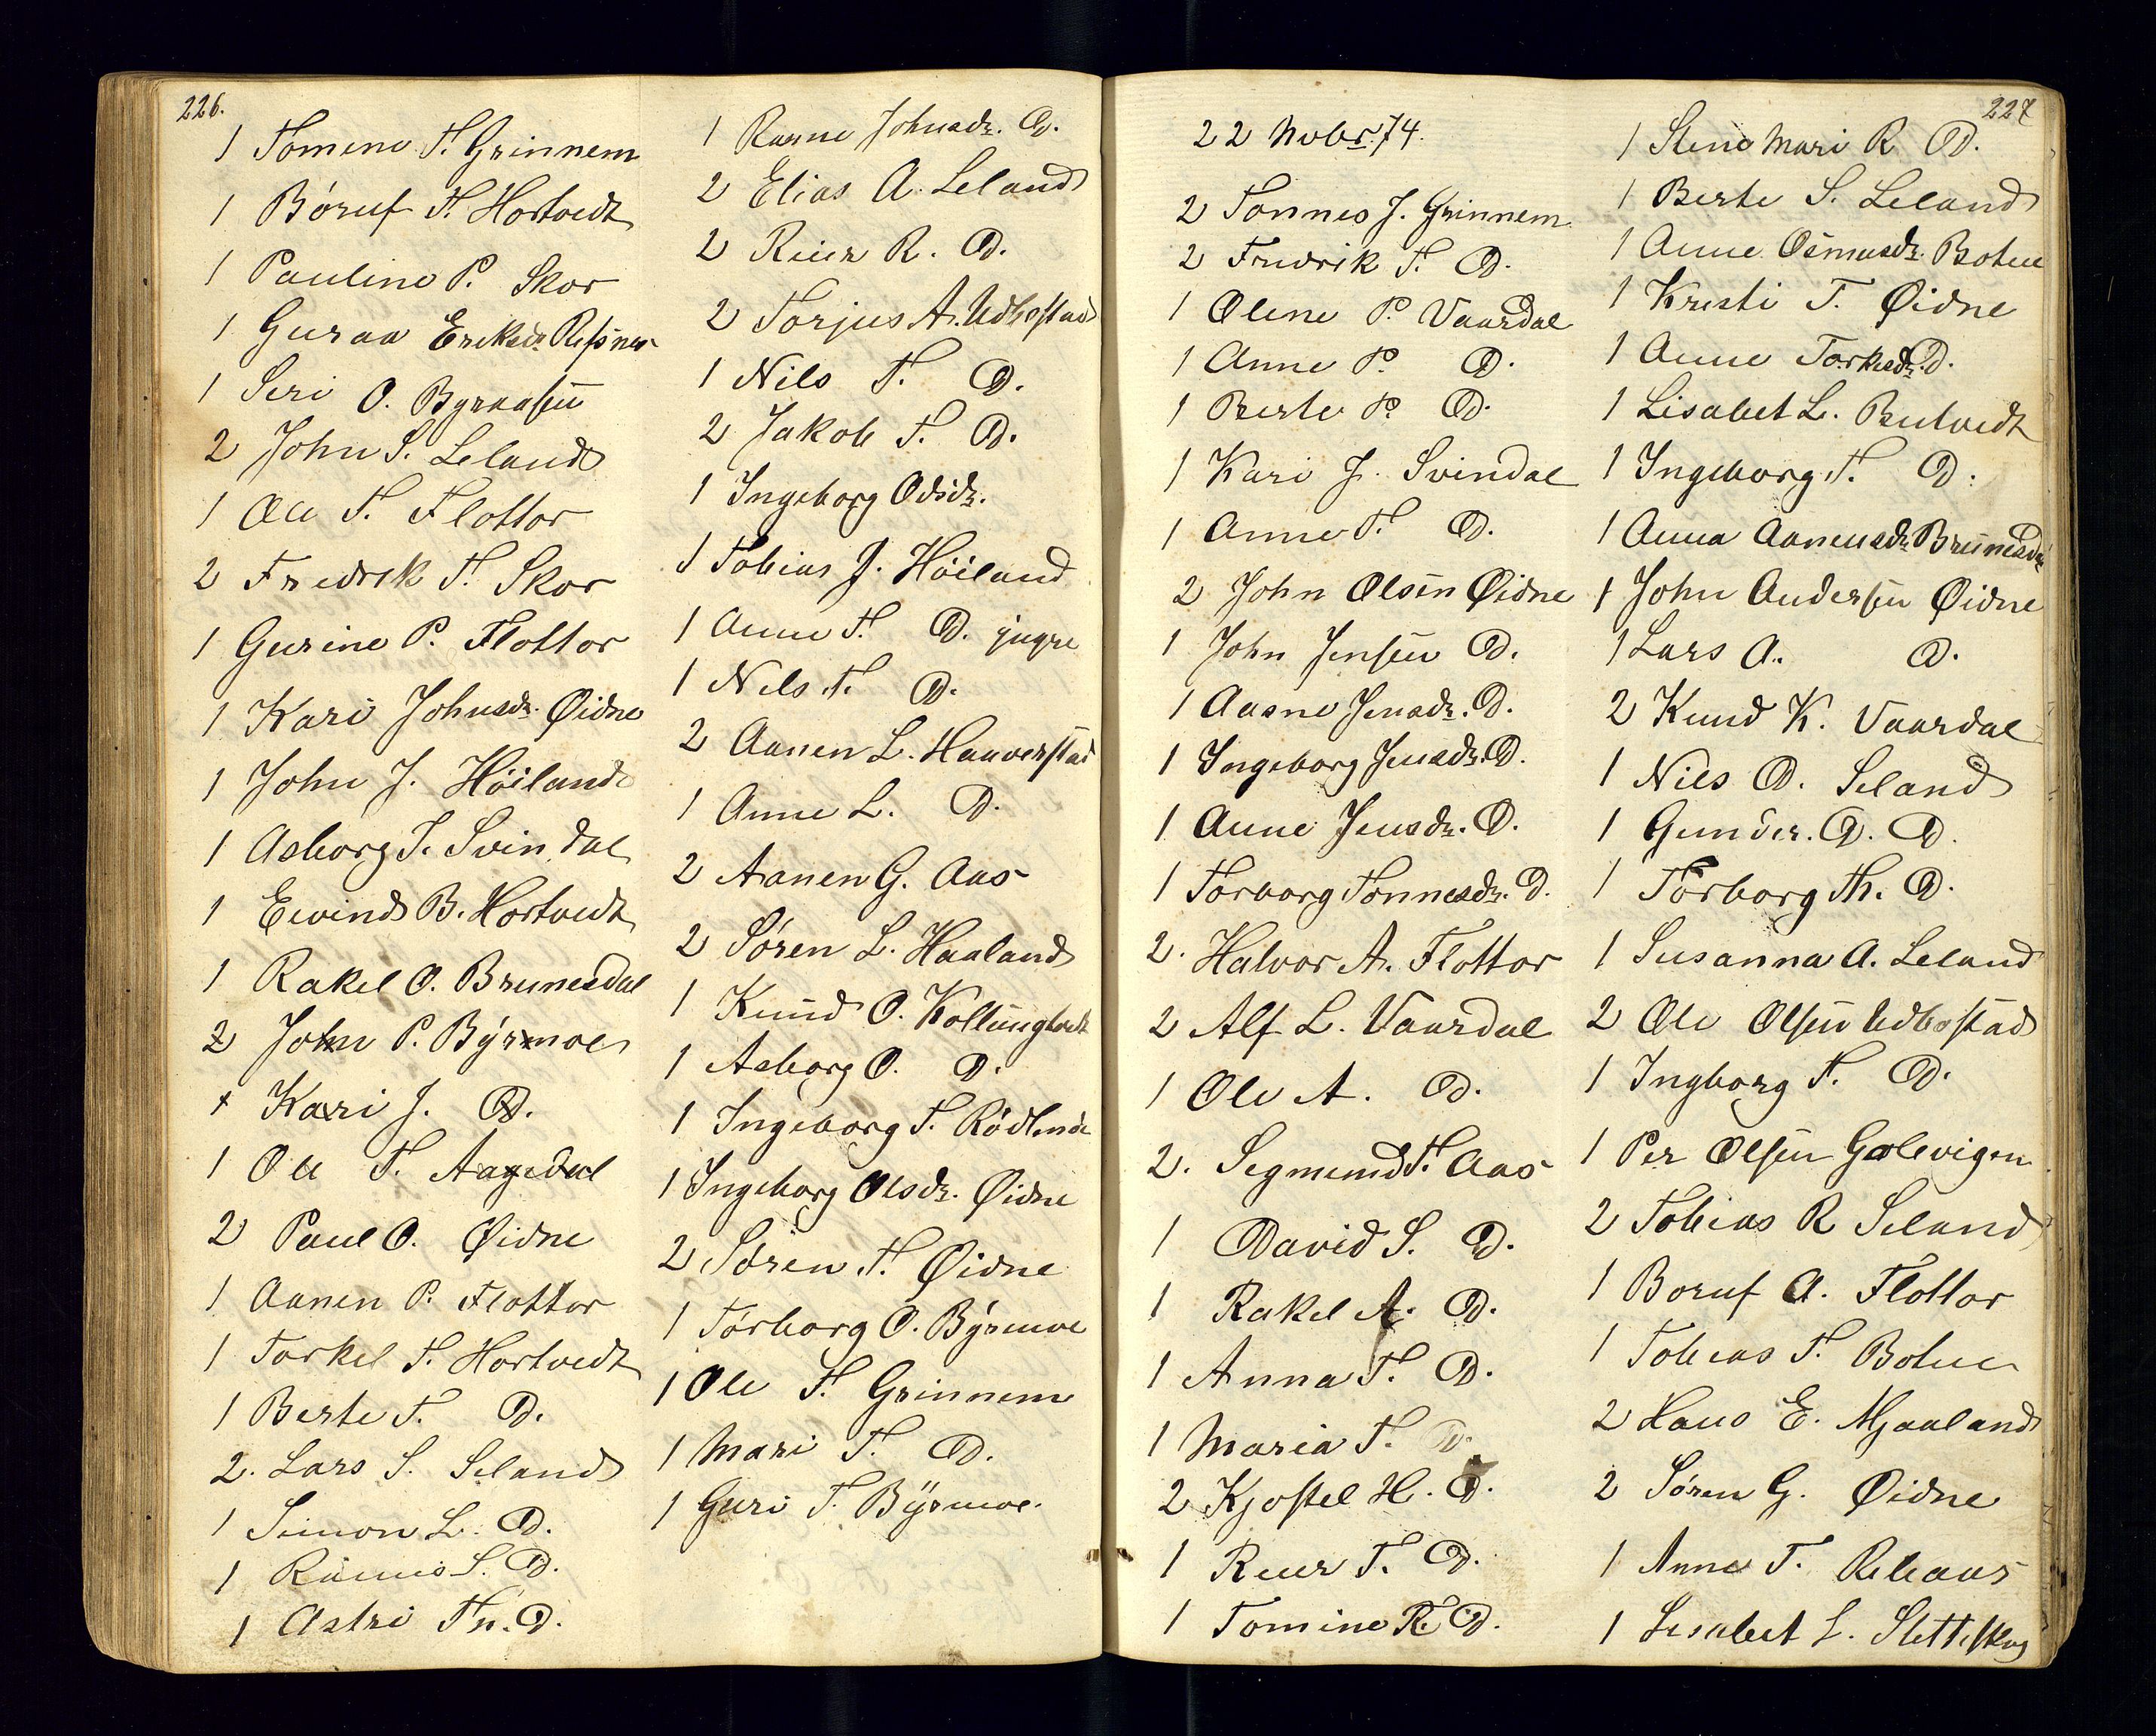 226.
1 Tomene T. Grinnem
1 Böruf T. Hortvedt
1 Pauline P. Skor
1 Guraa Eriksdr. Refsnes
1 Seri O. Byrmosen
2 John S. Leland
1 Ole T. Flottor
2 Fredrik T. Skor
1 Gurine P. Flottor
1 Kari Johnsdr. Øidne
1 John J. Höiland
1 Asborg T. Svindal
1 Eivind B. Hortvedt
1 Rakel O. Brunesdal
2 John P. Byrmoe
1 Kari J. D.
1 Ole T. Aagedal
2 Paul O. Øidne
1 Aanen P. Flottor
1 Torkel T. Hortvedt
1 Berte T. D.
2. Lars S. Seland
1 Simon L. D.
1 S. D.
1 Astri Th. D.
1 Johnsdr. D.
2 Elias A. Leland
2 Reier R. D.
2 Torjus A. Udbostad
1 Nils T. D.
2 Jakob T. D.
1 Ingeborg Odsdr.
1 Tobias J. Höiland
1 Anne T. D. yngre
1 Nils T. D.
2 Aanen L. Haaverstad
1 Anne L. D.
2 Aanen G. Aas
2 Søren L. Haaland
1 Knud O. Kollungtveit
1 Asborg O. D.
1 Ingeborg T.
1 Ingeborg Olsdr. Øidne
2 Søren T. Øidne
1 Torborg O. Byrmoe
1 Ole T. Grinnem
1 Mari T. D.
1 Guri T. Byrmoe.
22 Nobr. 74.
2 Tonnes J. Grinnem
2 Fredrik T. D.
1 Olene P. Vaardal
1 Anne P. D.
1 Berte P. D.
1 Kari J. Svindal
1 Anne T. D.
2 John Olsen Øidne
1 John Jensen D.
1 Aasne Jensdr. D.
1 Ingeborg Jensdr. D.
1 Anne Jensdr. D.
1 Torborg Tonnesdr. D.
2. Halvor A. Flottor
2 Alf L. Vaardal
1 Ole A. D.
2. Segmund T. Aas
1 David S. D.
1 Rakel A. D.
1 Anna T. D.
1 Maria T. D.
2 Kjostel H. D.
1 Reier T. D.
1 Tomine R. D.
227
1 Stene Mari R D.
1 Berte S. Leland
1 Anne Osmusdr. Botne
1 Kristi T. Øidne
1 Anne Torkedr. D.
1 Lisabet L. Bentvedt
1 Ingeborg T. D.
1 Anna Aanensdr. Brunesdal
1 John Andersen Øidne
1 Lars A. D.
2 Knud K. Vaardal
1 Niels D. Seland
1 Gunder. D. D.
1 Torborg Th. D.
1 Susanna A. Leland
2 Ole Olsen Udbostad
1 Ingborg T. D.
1 Per Olsen Galevigen
2 Tobias R Seland
1 Boruf A. Flottor
1 Tobias T. Botne
2 Hans E. Mjaaland
2 Søren G. Øidne
1 Anne T.
1 Lisabeet L. Stetteskog